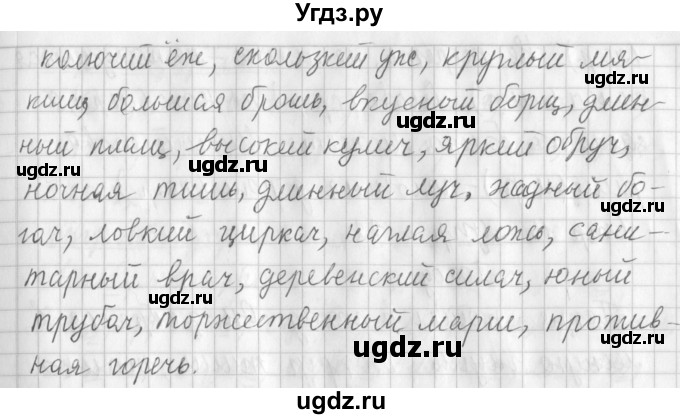 Угдз.ру
колючий ёж, скользкий уж, круглый мя-
киш, большая брошь, вкусный борщ, длин-
ный плащ, высокий кулич, яркий обруч,
ночная тишь, длинный луч, жадный бо-
гач, ловкий циркач, наглая ложь, сани-
тарный врач, деревенский силач, юный
трубач, торжественный марш, против-
ная горечь.
gdz.ru
gdz.ru
gdz.ru
gdz.ru
gdz.ru
gdz.ru
gdz.ru
gdz.ru
gdz.ru
gdz.ru
ugdz.ru